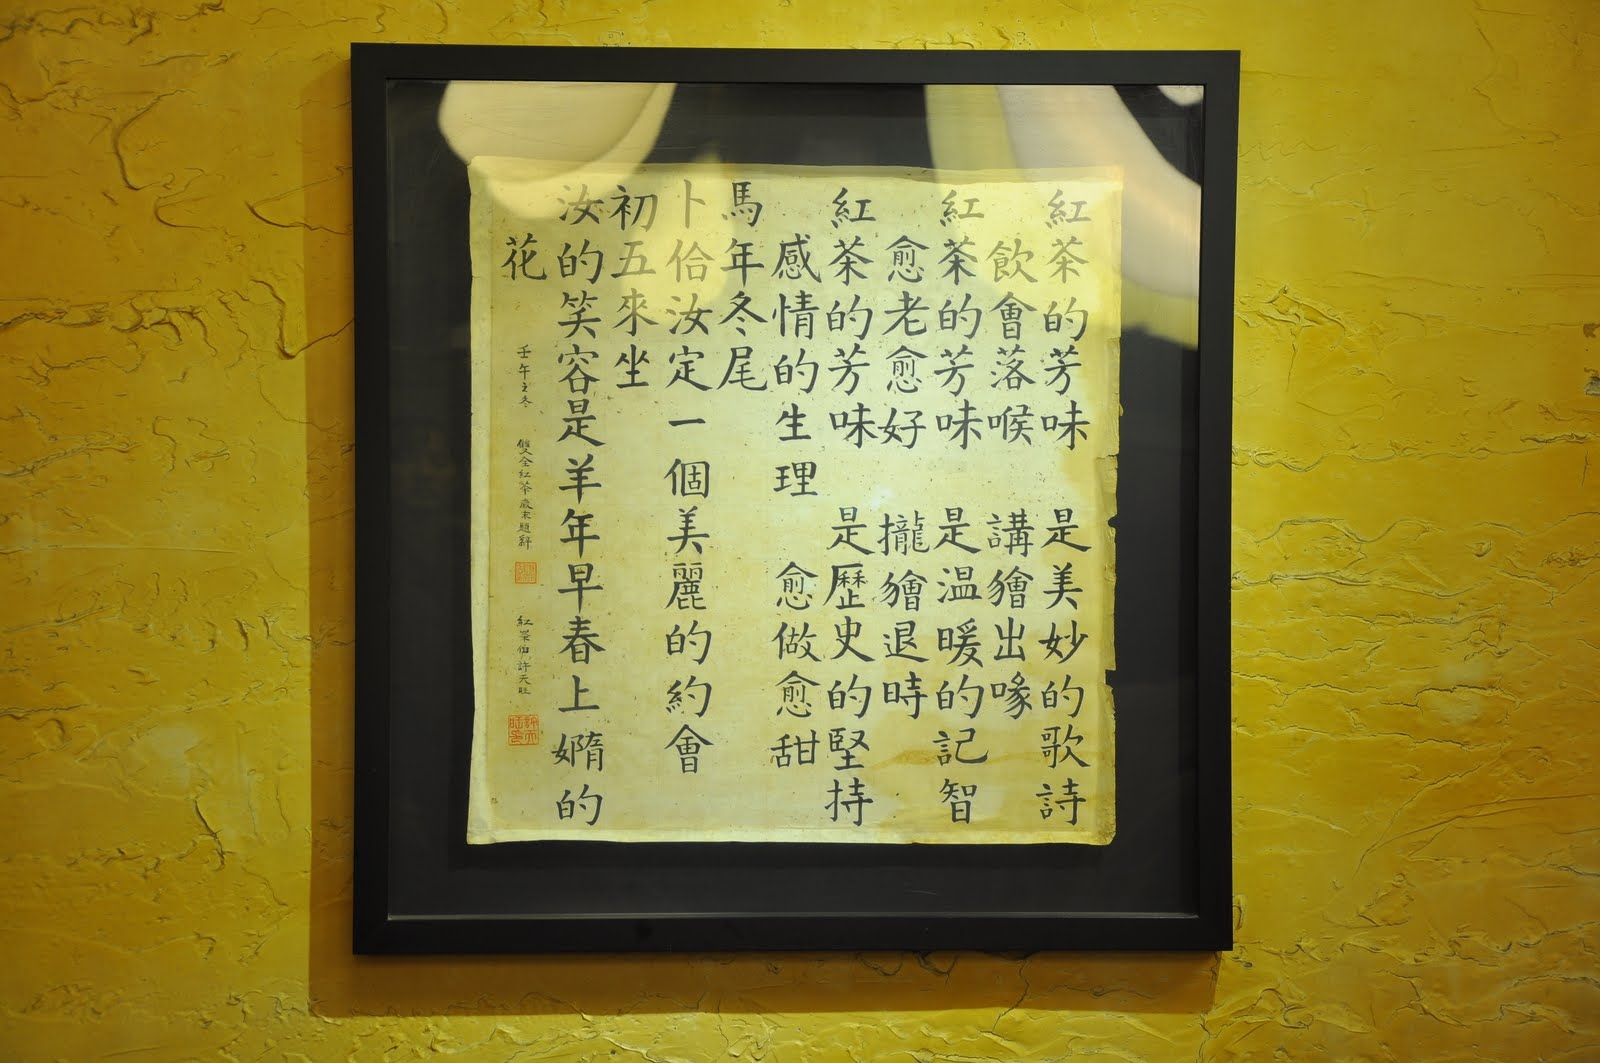 紅茶的芳味 是美妙的歌詩
飲會落喉 講獪出喙
紅茶的芳味 是温暖的記智
愈老愈好 攏獪退時
紅茶的芳味 是歷史的堅持
感情的生理 愈做愈甜
馬年冬尾
卜佮汝定一個美麗的約會
初五來坐
汝的笑容是羊年早春上嫷的
花
壬午之冬 雙全紅茶歲末題辭
紅茶伯 許天旺